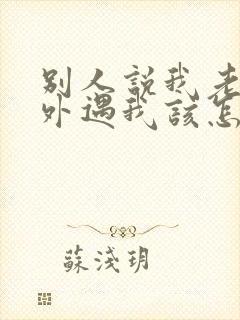 别人說我老
外遇我該怎
蘇淺玥